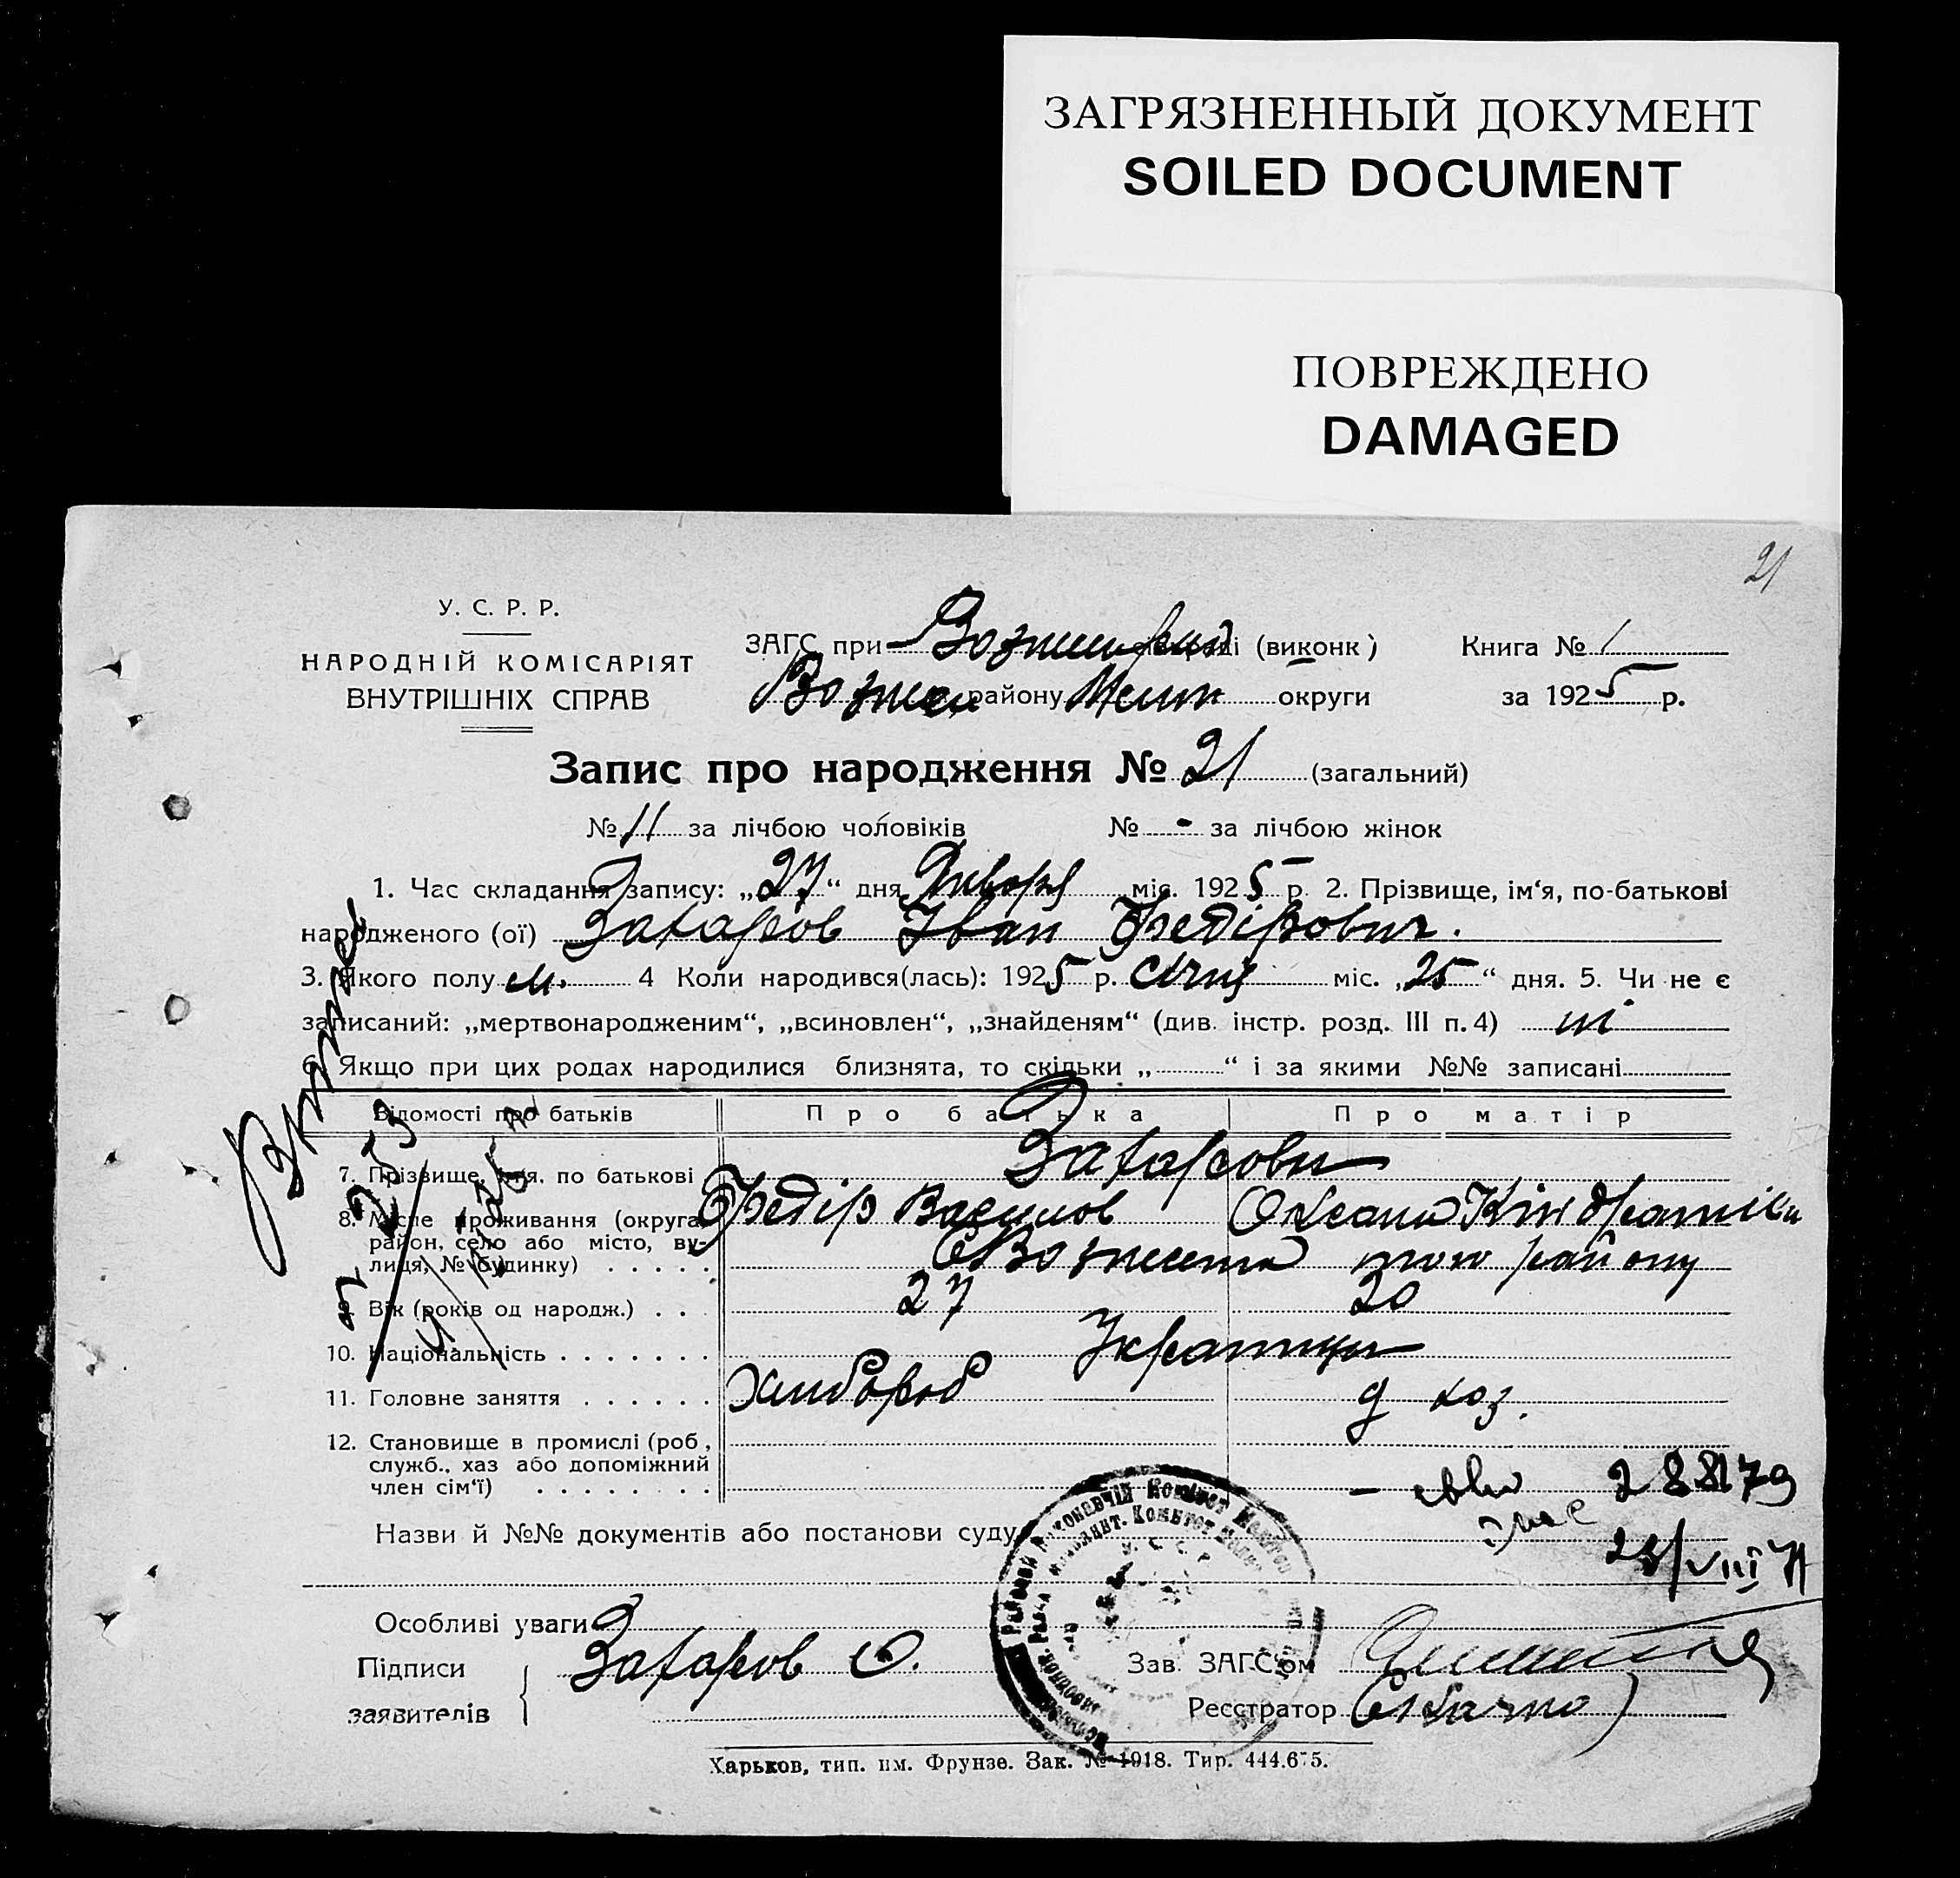 ЗАГРЯЗНЕННЫЙ ДОКУМЕНТ
SOILED DOCUMENT
ПОВРЕЖДЕНО
DAMAGED
21
У. С. Р. Р.
НАРОДНІЙ КОМІСАРІЯТ
ВНУТРІШНІХ СПРАВ
ЗАГС при (виконк) Книга № 1
району округи за 1925 р.
Запис про народження № 21 (загальний)
№ 11 за лічбою чоловіків № - за лічбою жінок
1. Час складання запису: „27“ дня Января міс. 1925 р. 2. Прізвище, ім‘я, по-батькові
народженого (ої) Захаров Іван Федірович.
3. Якого полу м. 4 Коли народився(лась): 1925 р. січня міс. „25“ дня. 5. Чи не є
записаний: „мертвонародженим“, „всиновлен“, „знайденям“ (див. інстр. розд. III п. 4) ні
6. Якщо при цих родах народилися близнята, то скільки „ “ і за якими №№ записані
Відомості про батьків Про батька Про матір
7. Прізвище, імя, по батькові Захарови
Федір Васильов Оксана Кіндратівна
8. Місце проживання (округа,
район, село або місто, вулиця, № будинку) того району
9. Вік (років од народж.) 27 20
10. Національність Українци
11. Головне заняття Хлібороб д хоз.
12. Становище в промислі (роб,
служб., хаз або допоміжний
член сім‘ї)
288179
Назви й №№ документів або постанови суду
Особливі уваги
Підписи Захаров Зав. ЗАГС‘ом
заявителів Реєстратор
Харьков, тип. им. Фрунзе. Зак. № 1918. Тир. 444.675.